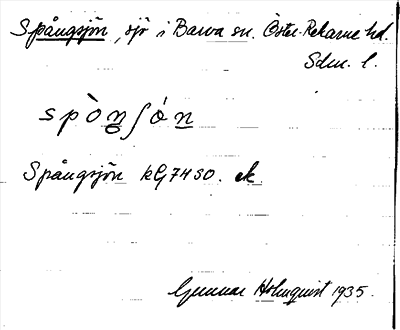 Spångsjön, sjö i Barva sn. Öster-Rekarne hd.
Sdm. l.
spòŋʃón
Spångsjön kG74SO. ek.
Gunnar Holmquist 1935.